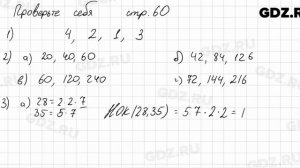 GDZ.RU
Проверьте себя стр. 60
1) 4, 2, 1, 3
2) а) 20, 40, 60 б) 42, 84, 126
в) 60, 120, 240 г) 72, 144, 216
3) а) 28 = 2 2 · 7
35 = 5 · 7
НОК (28, 35) = 5 7 · 2 · 2 = 1